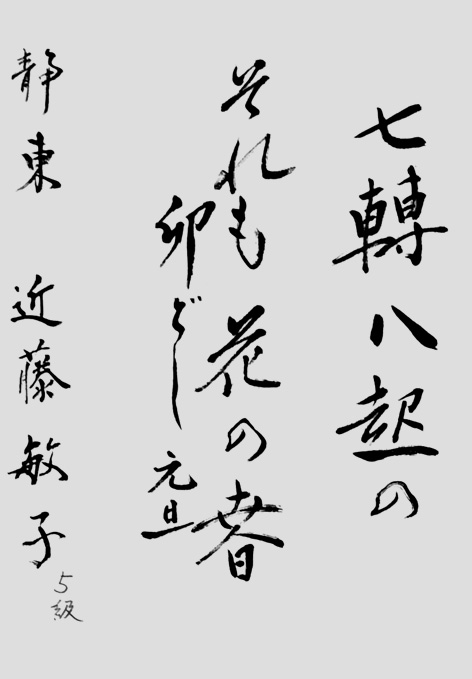 七轉八起の
それも花の春
卯どし
元旦
静東 近藤敏子
5級